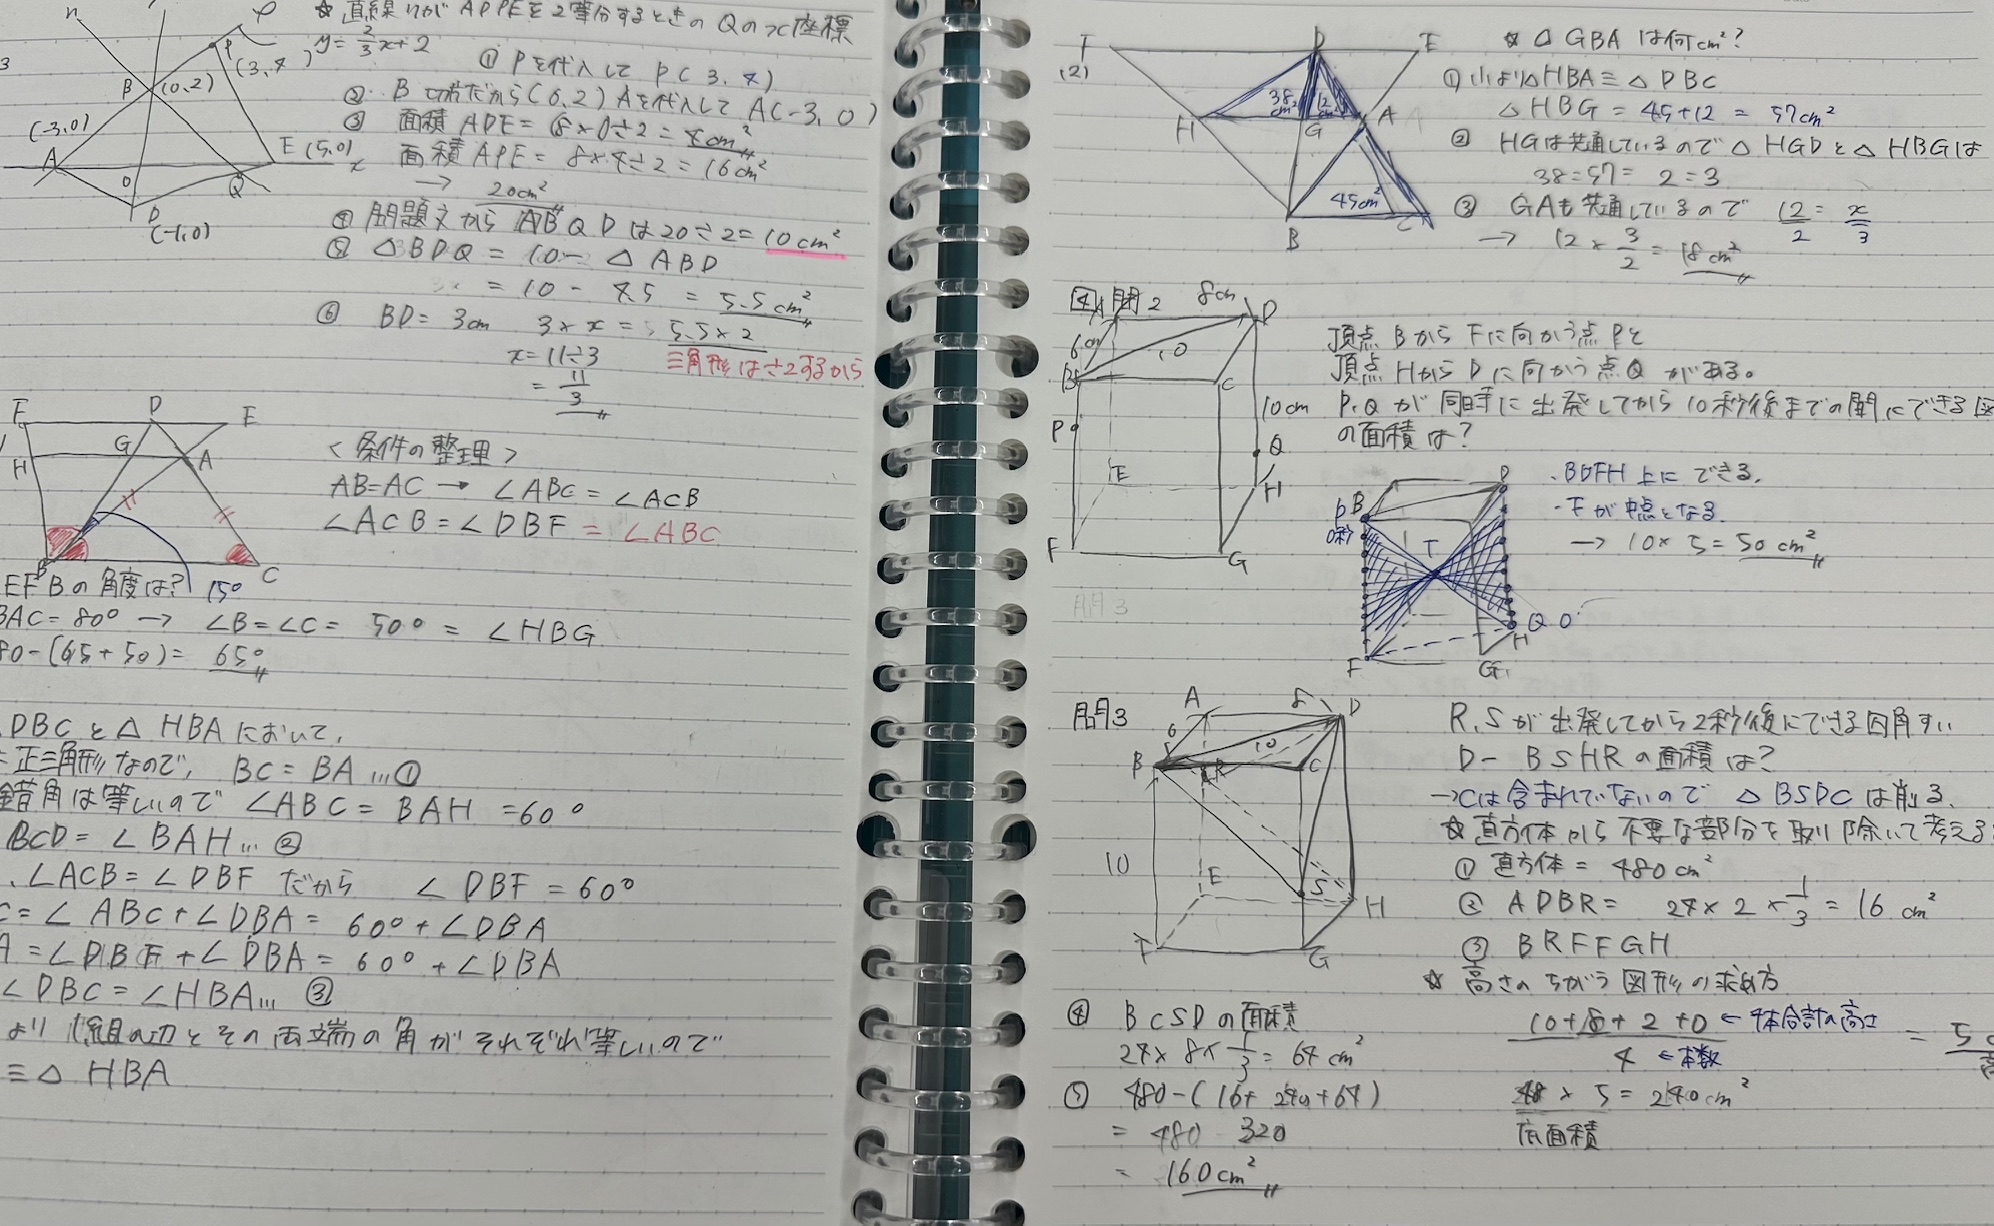 ☆ 直線nが APPEを2等分するときの Qのx座標
y=2/3x+2
① Pを代入して P(3,4)
② B 切片だから(0,2) Aを代入して A(-3,0)
③ 面積 ADE= 8×0÷2= 4cm²
面積 APE= 8×4÷2=16cm²
→ 20cm²
④ 問題文から ABQDは20÷2=10cm²
⑤ △BDQ = 10- △ABD
= 10 - 4.5 = 5.5cm²
⑥ BD= 3cm 3×x= 5.5×2
x=11÷3 三角形は÷2するから
= 11/3
n
P
(3,4)
B (0,2)
(-3,0)
A
E (5,0)
x
O
Q
D
(-1,0)
F D E
G
H A
B C
<条件の整理>
AB=AC → ∠ABC=∠ACB
∠ACB=∠DBF=∠ABC
EFBの角度は? 15°
BAC=80° → ∠B=∠C= 50° = ∠HBG
80-(65+50)= 65°
DBCと△HBAにおいて,
正三角形なので, BC=BA…①
錯角は等しいので ∠ABC=BAH=60°
BCD=∠BAH…②
∠ACB=∠DBFだから ∠DBF=60°
C=∠ABC+∠DBA= 60°+∠DBA
A=∠DBF+∠DBA= 60°+∠DBA
∠DBC=∠HBA…③
より 1組の辺とその両端の角がそれぞれ等しいので
≡△HBA
F D E
(2)
38cm² 12cm²
H G A
45cm²
B C
☆ △GBAは何cm²?
① (1)より△HBA≡△DBC
△HBG= 45+12 = 57cm²
② HGは共通しているので△HGDと△HBGは
38:57= 2:3
③ GAも共通しているので 12/2=x/3
→ 12×3/2=18cm²
図4 問2 8cm D
6cm
10
B C
10cm
P
Q
E H
F G
頂点BからFに向かう点Pと
頂点HからDに向かう点Qがある。
P,Qが同時に出発してから10秒後までの間にできる図
の面積は?
D
PB
0秒
T
Q 0
H
F G
・BDFH上にできる.
・Fが中点となる.
→ 10×5=50cm²
問3
問3 A 8 D
6 10
B R C
10
E S H
F G
R,Sが出発してから2秒後にできる四角すい
D-BSHRの面積は?
→Cは含まれていないので △BSDCは削る.
☆直方体から不要な部分を取り除いて考える
① 直方体= 480cm²
② ADBR= 24×2×1/3=16cm²
③ BRFFGH
☆ 高さのちがう図形の求め方
10+8+2+0 ←4本合計の高さ
4 ←本数
= 5
48×5=240cm²
底面積
④ BCSDの面積
24×8×1/3=64cm²
⑤ 480-(16+240+64)
= 480-320
= 160cm²